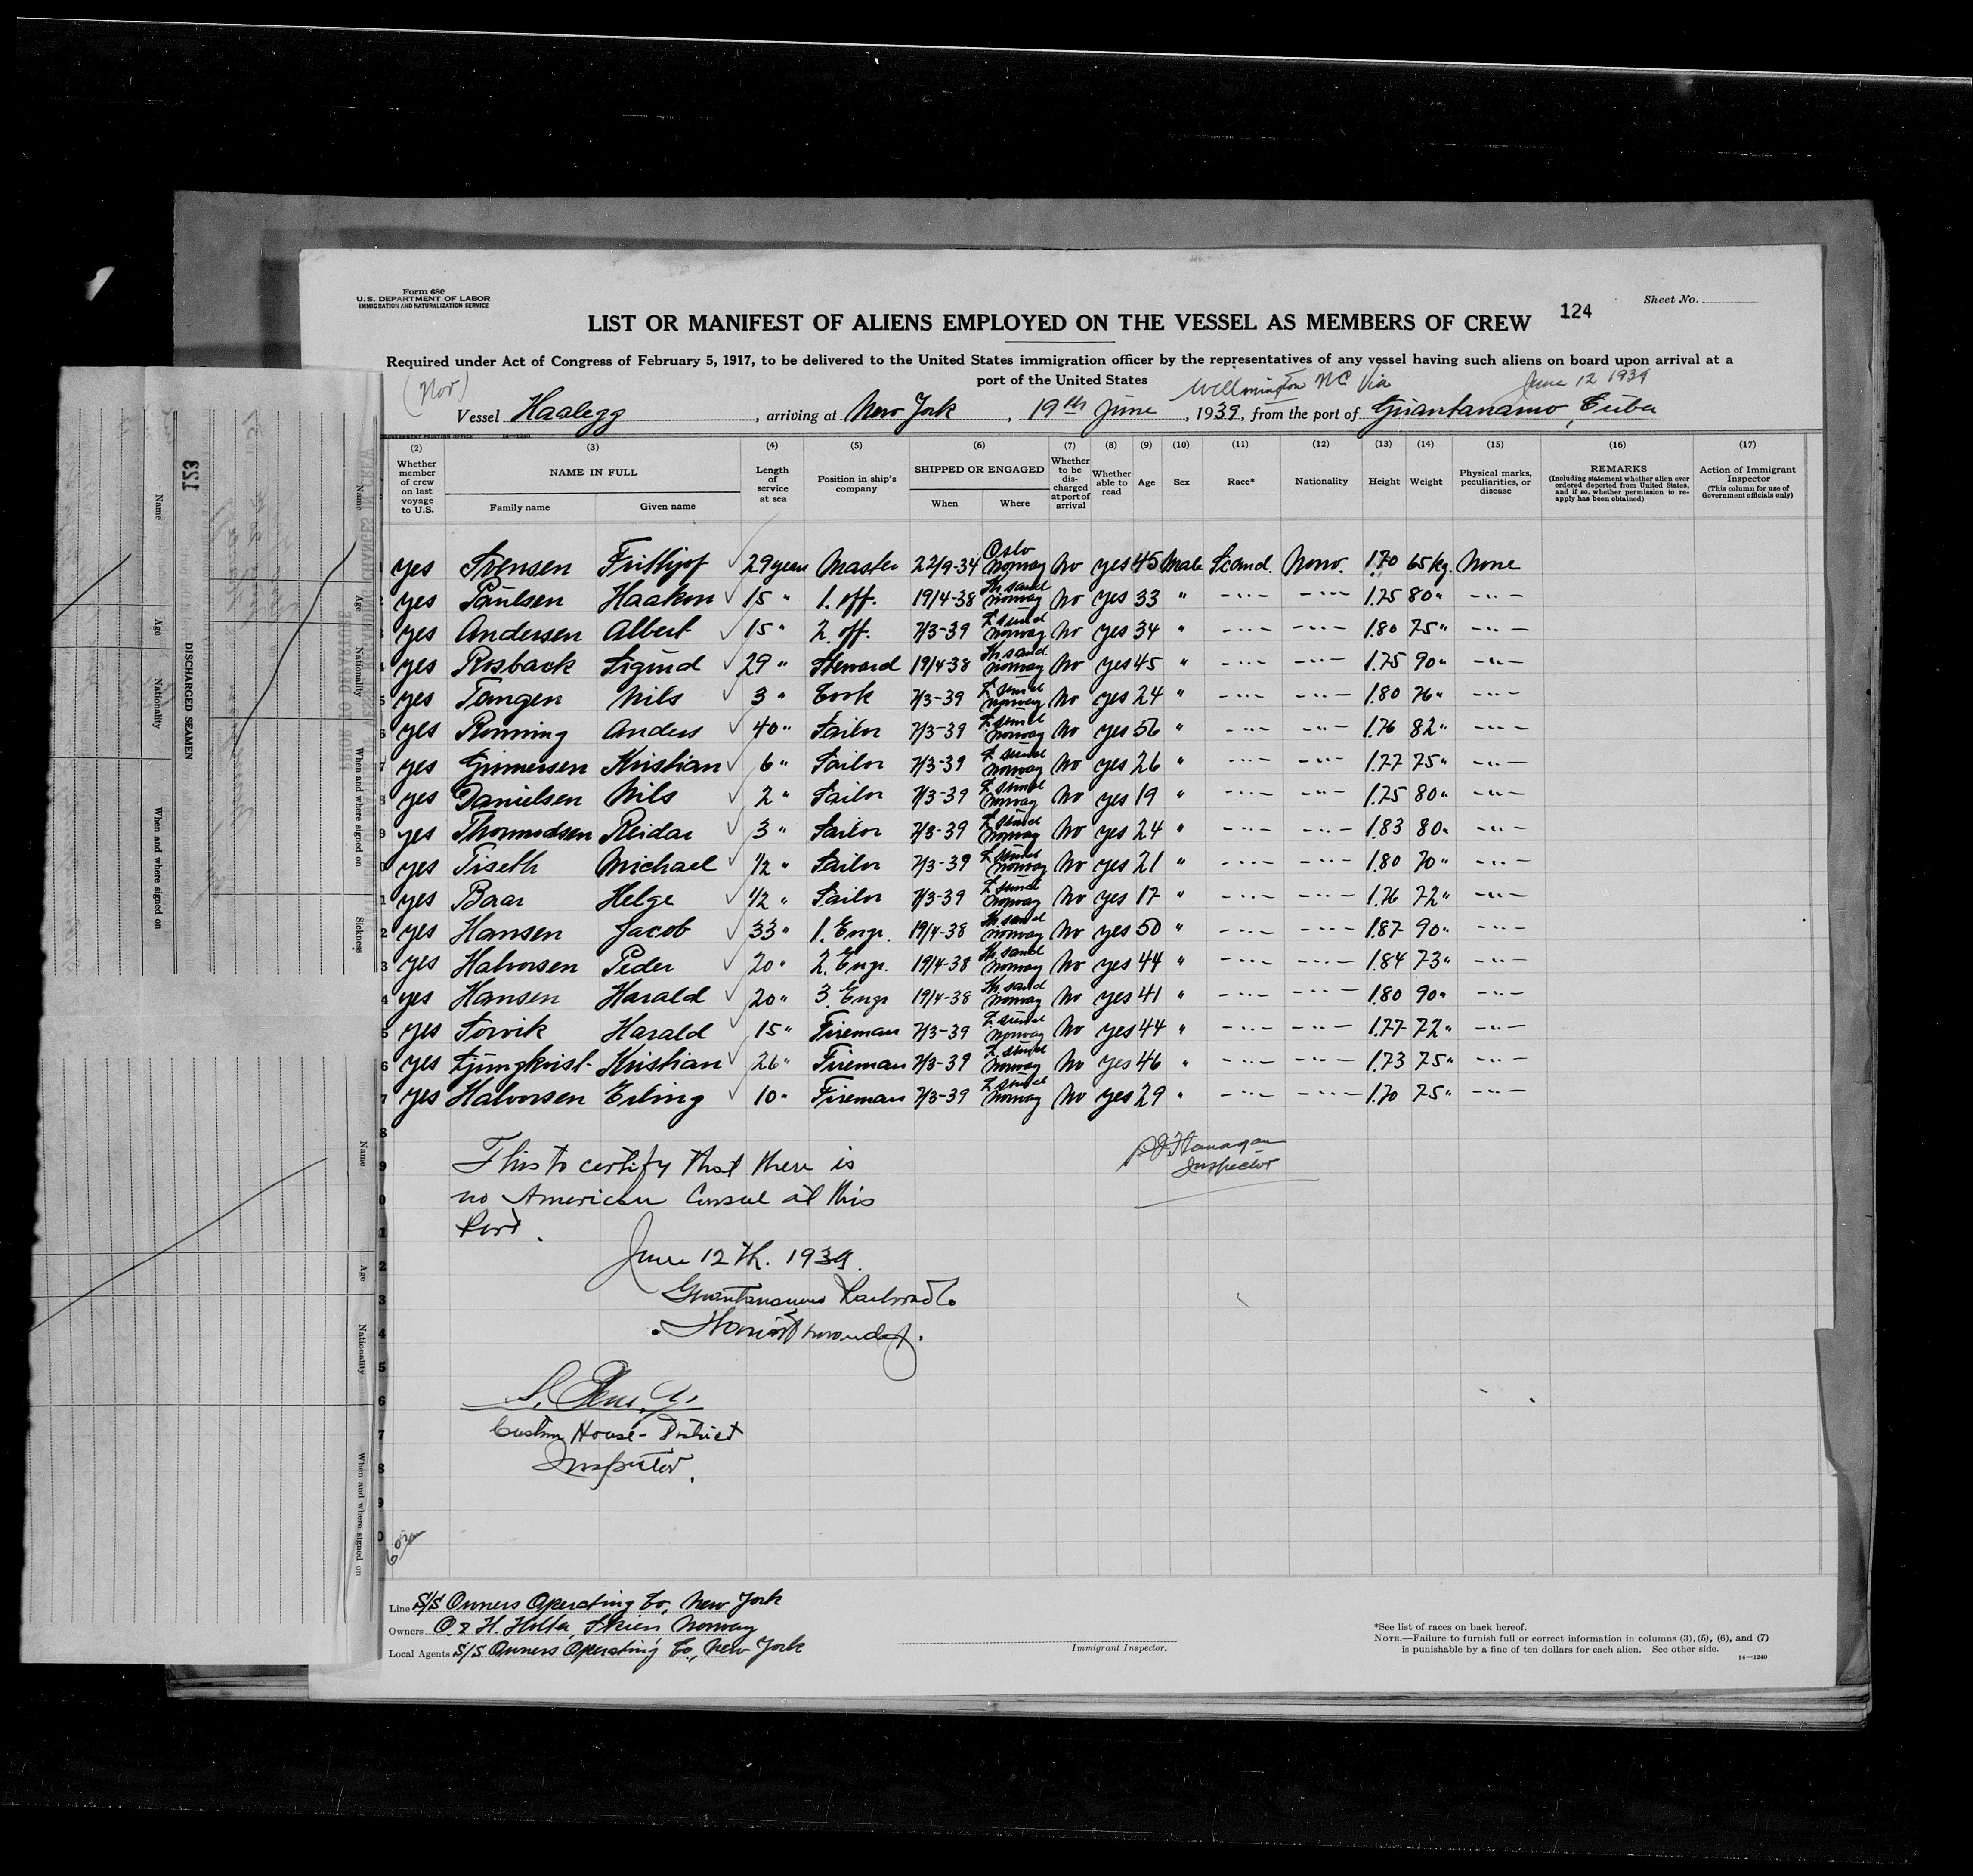 Form 680
U.S. DEPARTMENT OF LABOR
IMMIGRATION AND NATURALIZATION SERVICE
Sheet No.
124
LIST OR MANIFEST OF ALIENS EMPLOYED ON THE VESSEL AS MEMBERS OF CREW
Required under Act of Congress of February 5, 1917, to be delivered to the United States immigration officer by the representatives of any vessel having such aliens on board upon arrival at a
port of the United States
(Nor) Wilmington NC Via June 12 1939
Vessel Haalegg, arriving at New York, 19th June, 1939, from the port of Guantanamo, Cuba
(2) (3) (4) (5) (6) (7) (8) (9) (10) (11) (12) (13) (14) (15) (16) (17)
Whether member of crew on last voyage to U.S.
NAME IN FULL
Family name Given name
Length of service at sea
Position in ship's company
SHIPPED OR ENGAGED
When Where
Whether to be discharged at port of arrival
Whether able to read
Age
Sex
Race*
Nationality
Height
Weight
Physical marks, peculiarities, or disease
REMARKS
(Including statement whether alien ever ordered deported from United States, and if so, whether permission to reapply has been obtained)
Action of Immigrant Inspector
(This column for use of Government officials only)
yes Svensen Frithjof 29 years Master 22/9-34 Oslo Norway No yes 45 Male Scand. Norw. 1.70 65 kg. None
yes Paulsen Haakon 15 " 1. off. 19/4-38 Kr. sand Norway No yes 33 " -"- -"- 1.75 80 " -"-
yes Andersen Albert 15 " 2. off. 7/3-39 Norway No yes 34 " -"- -"- 1.80 75 " -"-
yes Rosback Sigurd 29 " Steward 19/4-38 Kr. sand Norway No yes 45 " -"- -"- 1.75 90 " -"-
yes Tangen Nils 3 " Cook 7/3-39 Norway No yes 24 " -"- -"- 1.80 76 " -"-
yes Rønning Anders 40 " Sailor 7/3-39 Norway No yes 56 " -"- -"- 1.76 82 " -"-
yes Gunnersen Kristian 6 " Sailor 7/3-39 Norway No yes 26 " -"- -"- 1.77 75 " -"-
yes Danielsen Nils 2 " Sailor 7/3-39 Norway No yes 19 " -"- -"- 1.75 80 " -"-
yes Thormodsen Reidar 3 " Sailor 7/3-39 Norway No yes 24 " -"- -"- 1.83 80 " -"-
yes Tiseth Michael 1/2 " Sailor 7/3-39 Norway No yes 21 " -"- -"- 1.80 70 " -"-
yes Baar Helge 1/2 " Sailor 7/3-39 Norway No yes 17 " -"- -"- 1.76 72 " -"-
yes Hansen Jacob 33 " 1. Engr. 19/4-38 Kr. sand Norway No yes 50 " -"- -"- 1.87 90 " -"-
yes Halvorsen Peder 20 " 2. Engr. 19/4-38 Kr. sand Norway No yes 44 " -"- -"- 1.84 73 " -"-
yes Hansen Harald 20 " 3. Engr 19/4-38 Kr. sand Norway No yes 41 " -"- -"- 1.80 90 " -"-
yes Sorvik Harald 15 " Fireman 7/3-39 Norway No yes 44 " -"- -"- 1.77 72 " -"-
yes Ljungkvist Kristian 26 " Fireman 7/3-39 Norway No yes 46 " -"- -"- 1.73 75 " -"-
yes Halvorsen Erling 10 " Fireman 7/3-39 Norway No yes 29 " -"- -"- 1.70 75 " -"-
Flanagan
Inspector
This to certify that there is
no American Consul at this
Port.
June 12th. 1939.
Guantanamo Railroad Co
Custom House - District
Inspector.
Line S/S Owners Operating Co, New York
Owners O. & H. Holta, Skien Norway
Local Agents S/S Owners Operating Co., New York
Immigrant Inspector.
*See list of races on back hereof.
NOTE.—Failure to furnish full or correct information in columns (3), (5), (6), and (7)
is punishable by a fine of ten dollars for each alien. See other side.
14—1240
123
DISCHARGED SEAMEN
Name Age Nationality When and where signed on
Name Age Nationality When and where signed on Sickness
Name Age Nationality When and where signed on